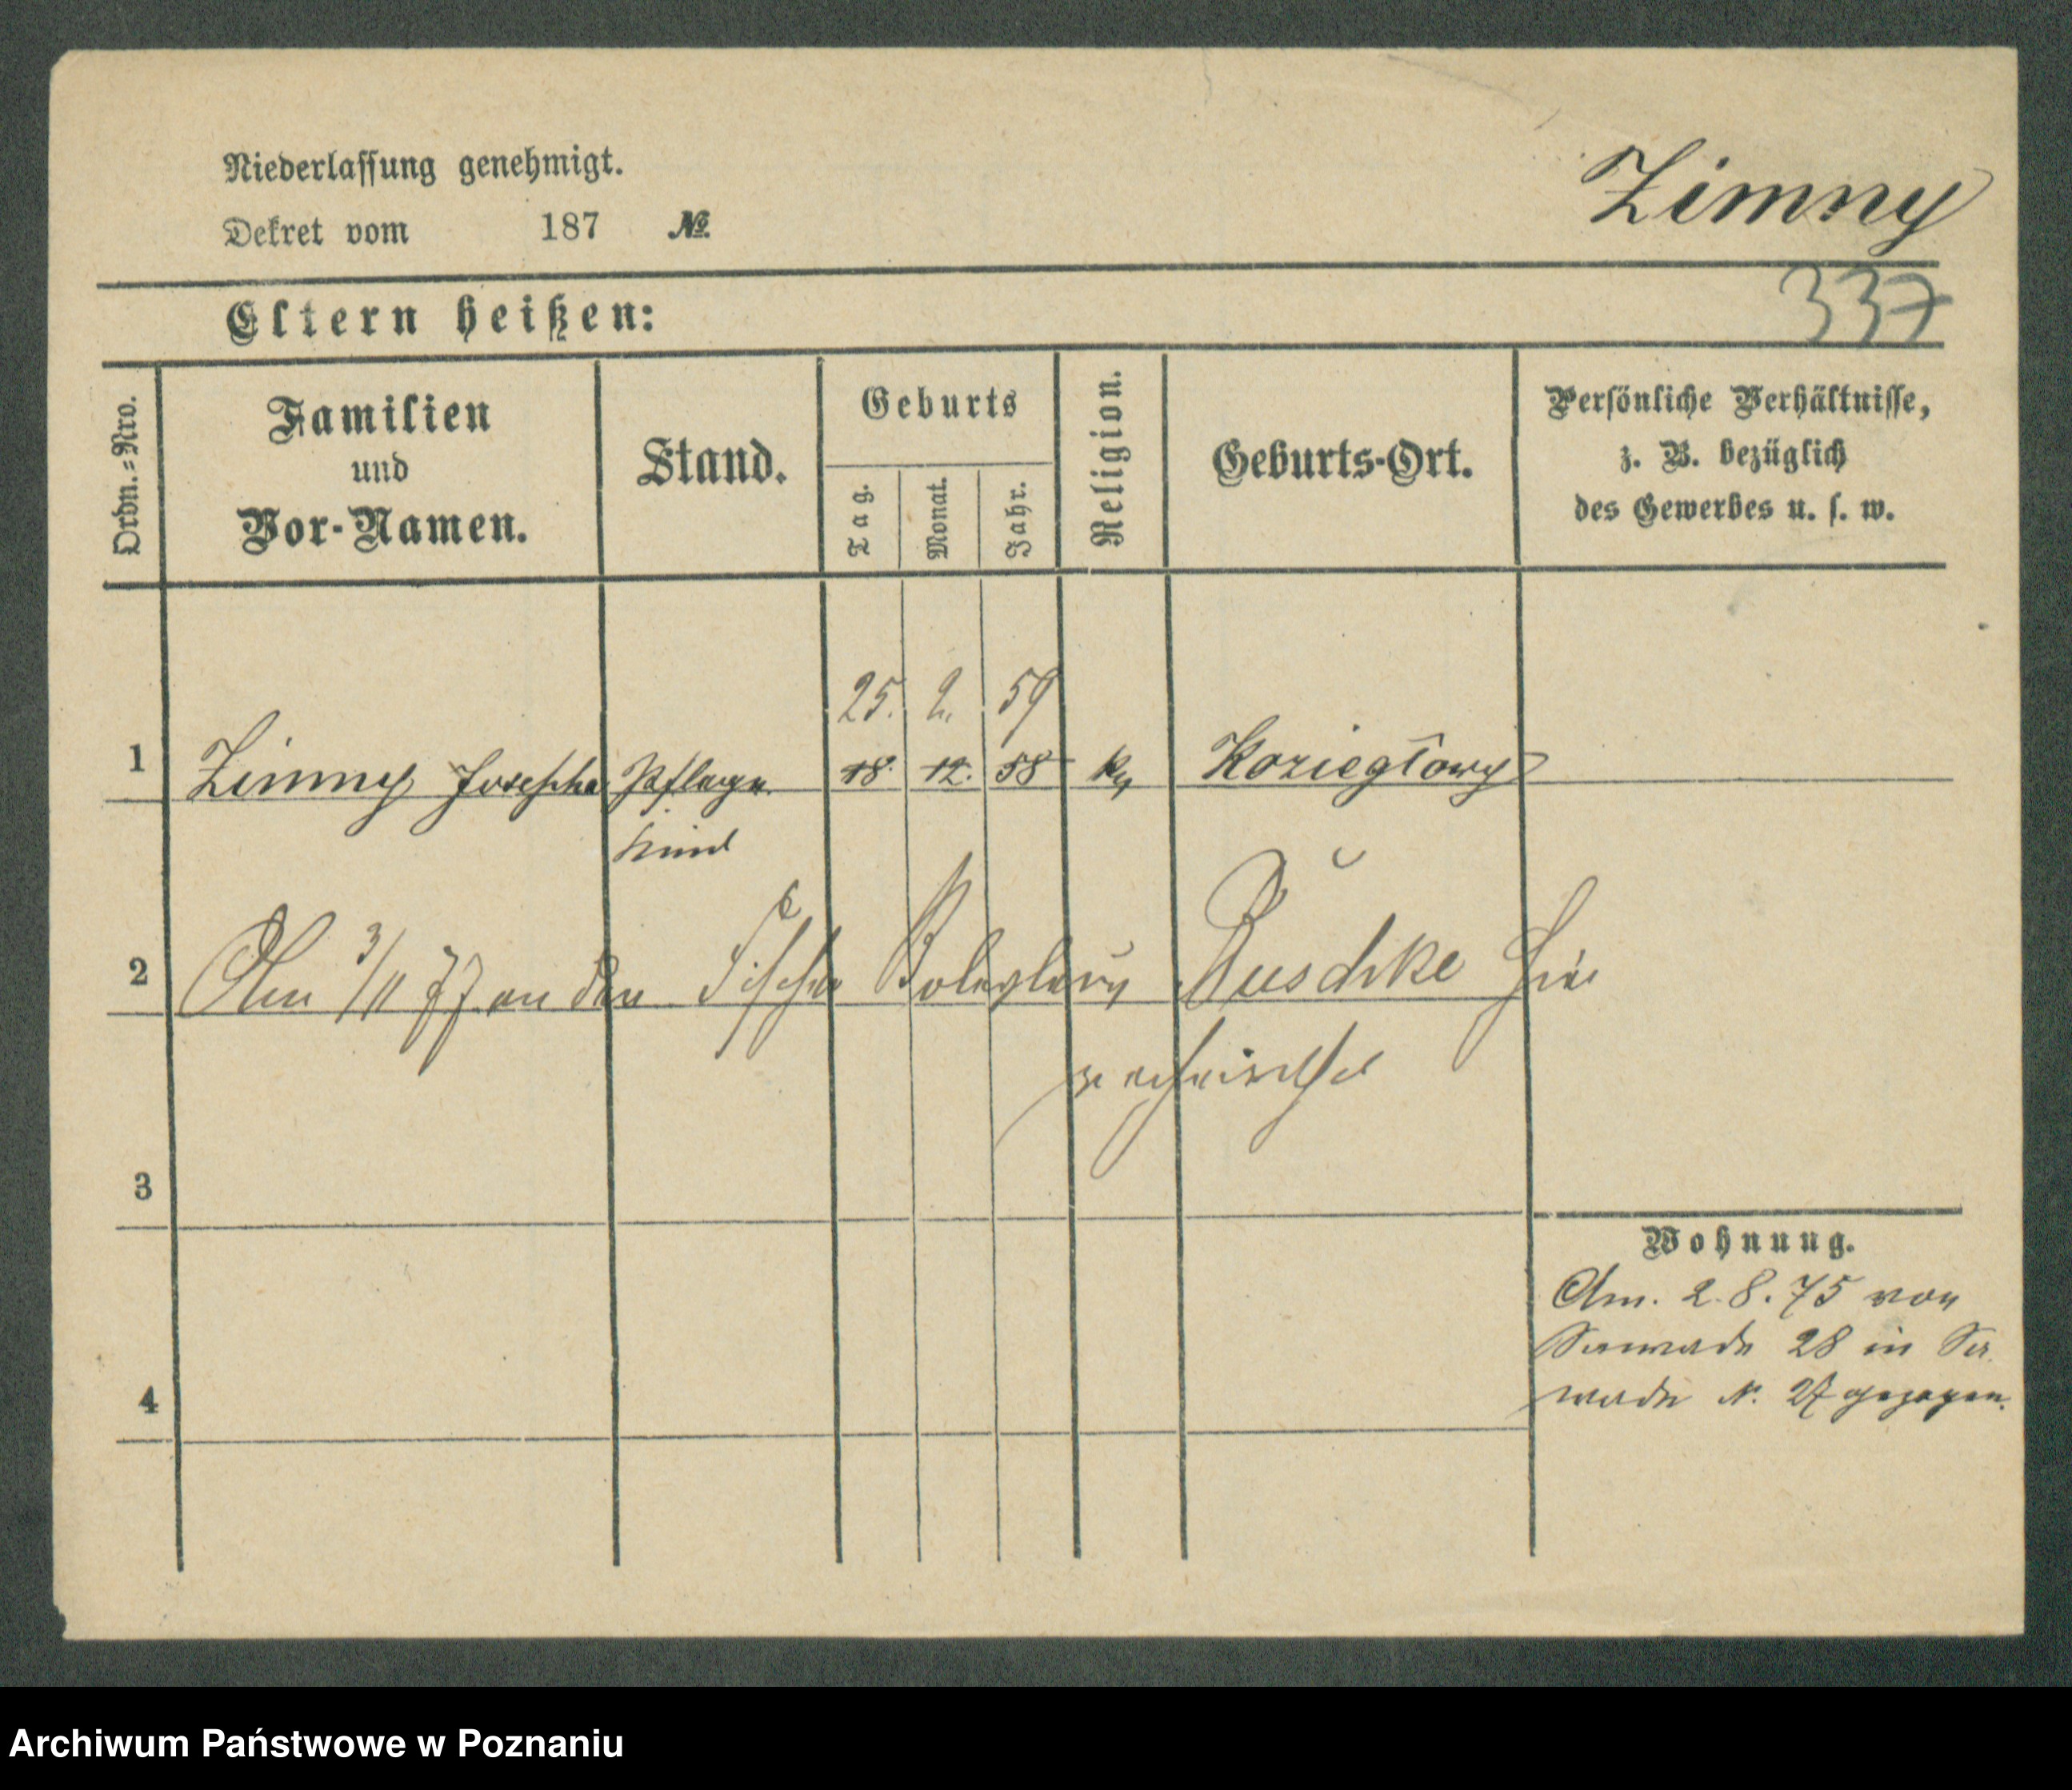 Niederlassung genehmigt.
Dekret vom 187 №
Zimny
337
Eltern heißen:
Ordn.=Nro.
Familien
und
Vor-Namen.
Stand.
Geburts
Tag.
Monat.
Jahr.
Religion.
Geburts-Ort.
Persönliche Verhältnisse,
z. B. bezüglich
des Gewerbes u. s. w.
25. 2. 59
1 Zimny Josepha Pflege 18. 12. 58 k Koziegłowy
kind
2 Am 3/11 77 an den Boleslaus Duschke hier
3
Wohnung.
Am. 2.8.75 von
28 in
N. 27 gezogen.
4
Archiwum Państwowe w Poznaniu